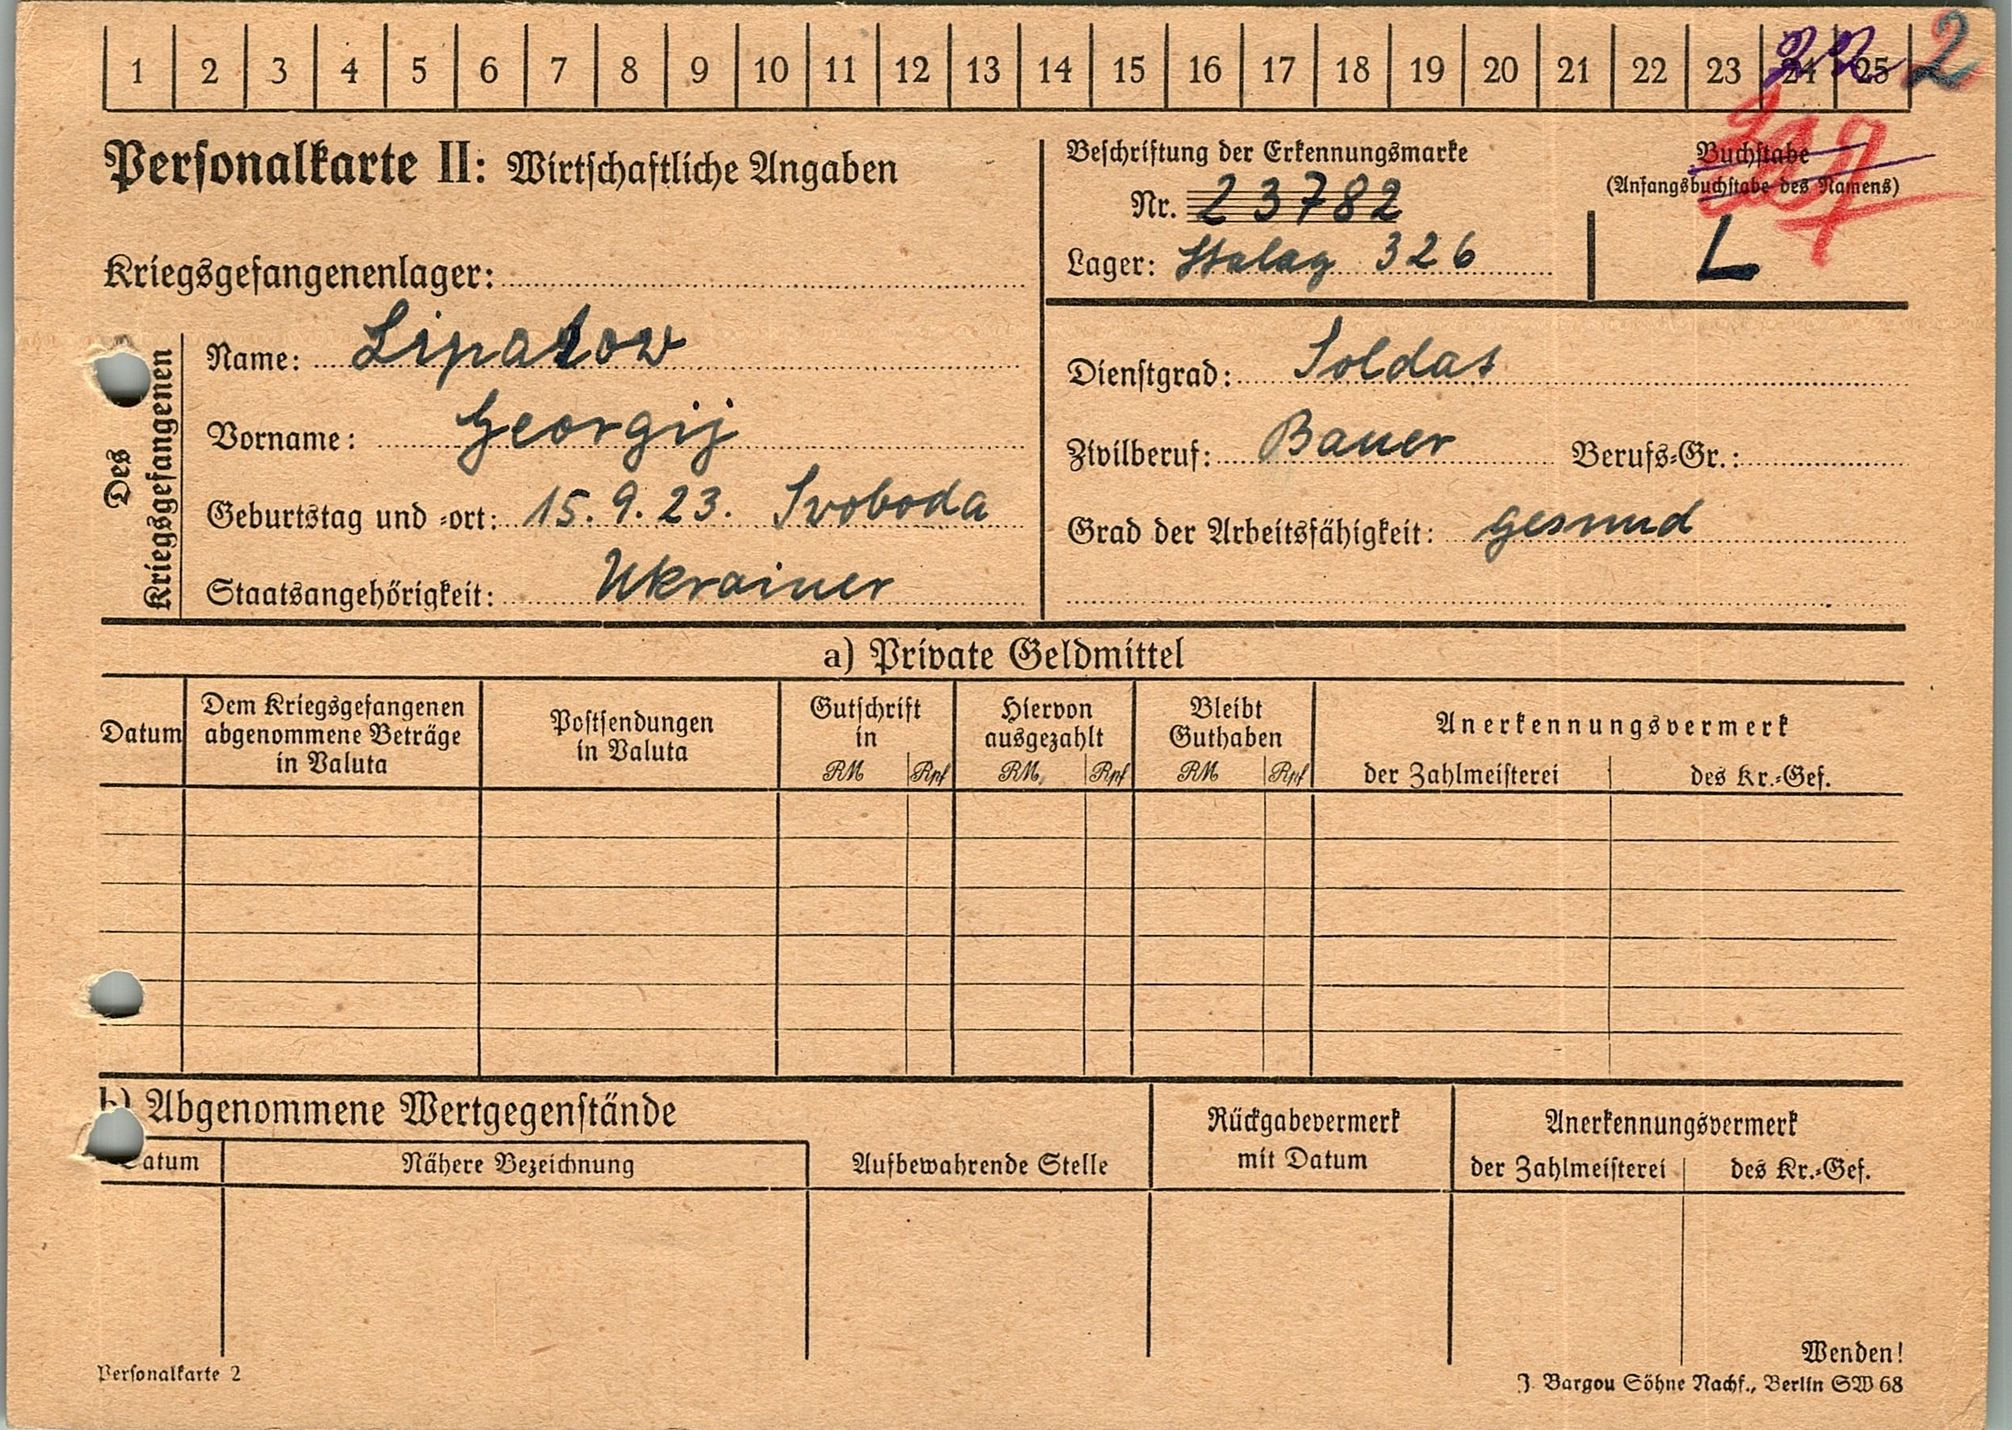 1 2 3 4 5 6 7 8 9 10 11 12 13 14 15 16 17 18 19 20 21 22 23 24 25 2
22
Personalkarte II: Wirtschaftliche Angaben
Beschriftung der Erkennungsmarke
Nr. 23782
Lager: Stalag 326
Buchstabe
(Anfangsbuchstabe des Namens)
L
Kriegsgefangenenlager:
Des Kriegsgefangenen
Name: Lipatow
Vorname: Georgij
Geburtstag und -ort: 15. 9. 23. Svoboda
Staatsangehörigkeit: Ukrainer
Dienstgrad: Soldat
Zivilberuf: Bauer Berufs-Gr.:
Grad der Arbeitsfähigkeit: gesund
a) Private Geldmittel
Datum
Dem Kriegsgefangenen
abgenommene Beträge
in Valuta
Postsendungen
in Valuta
Gutschrift
in
RM Rpf
Hiervon
ausgezahlt
RM Rpf
Bleibt
Guthaben
RM Rpf
Anerkennungsvermerk
der Zahlmeisterei des Kr.-Gef.
b) Abgenommene Wertgegenstände
Datum Nähere Bezeichnung Aufbewahrende Stelle
Rückgabevermerk
mit Datum
Anerkennungsvermerk
der Zahlmeisterei des Kr.-Gef.
Wenden!
Personalkarte 2
J. Bargou Söhne Nachf., Berlin SW 68